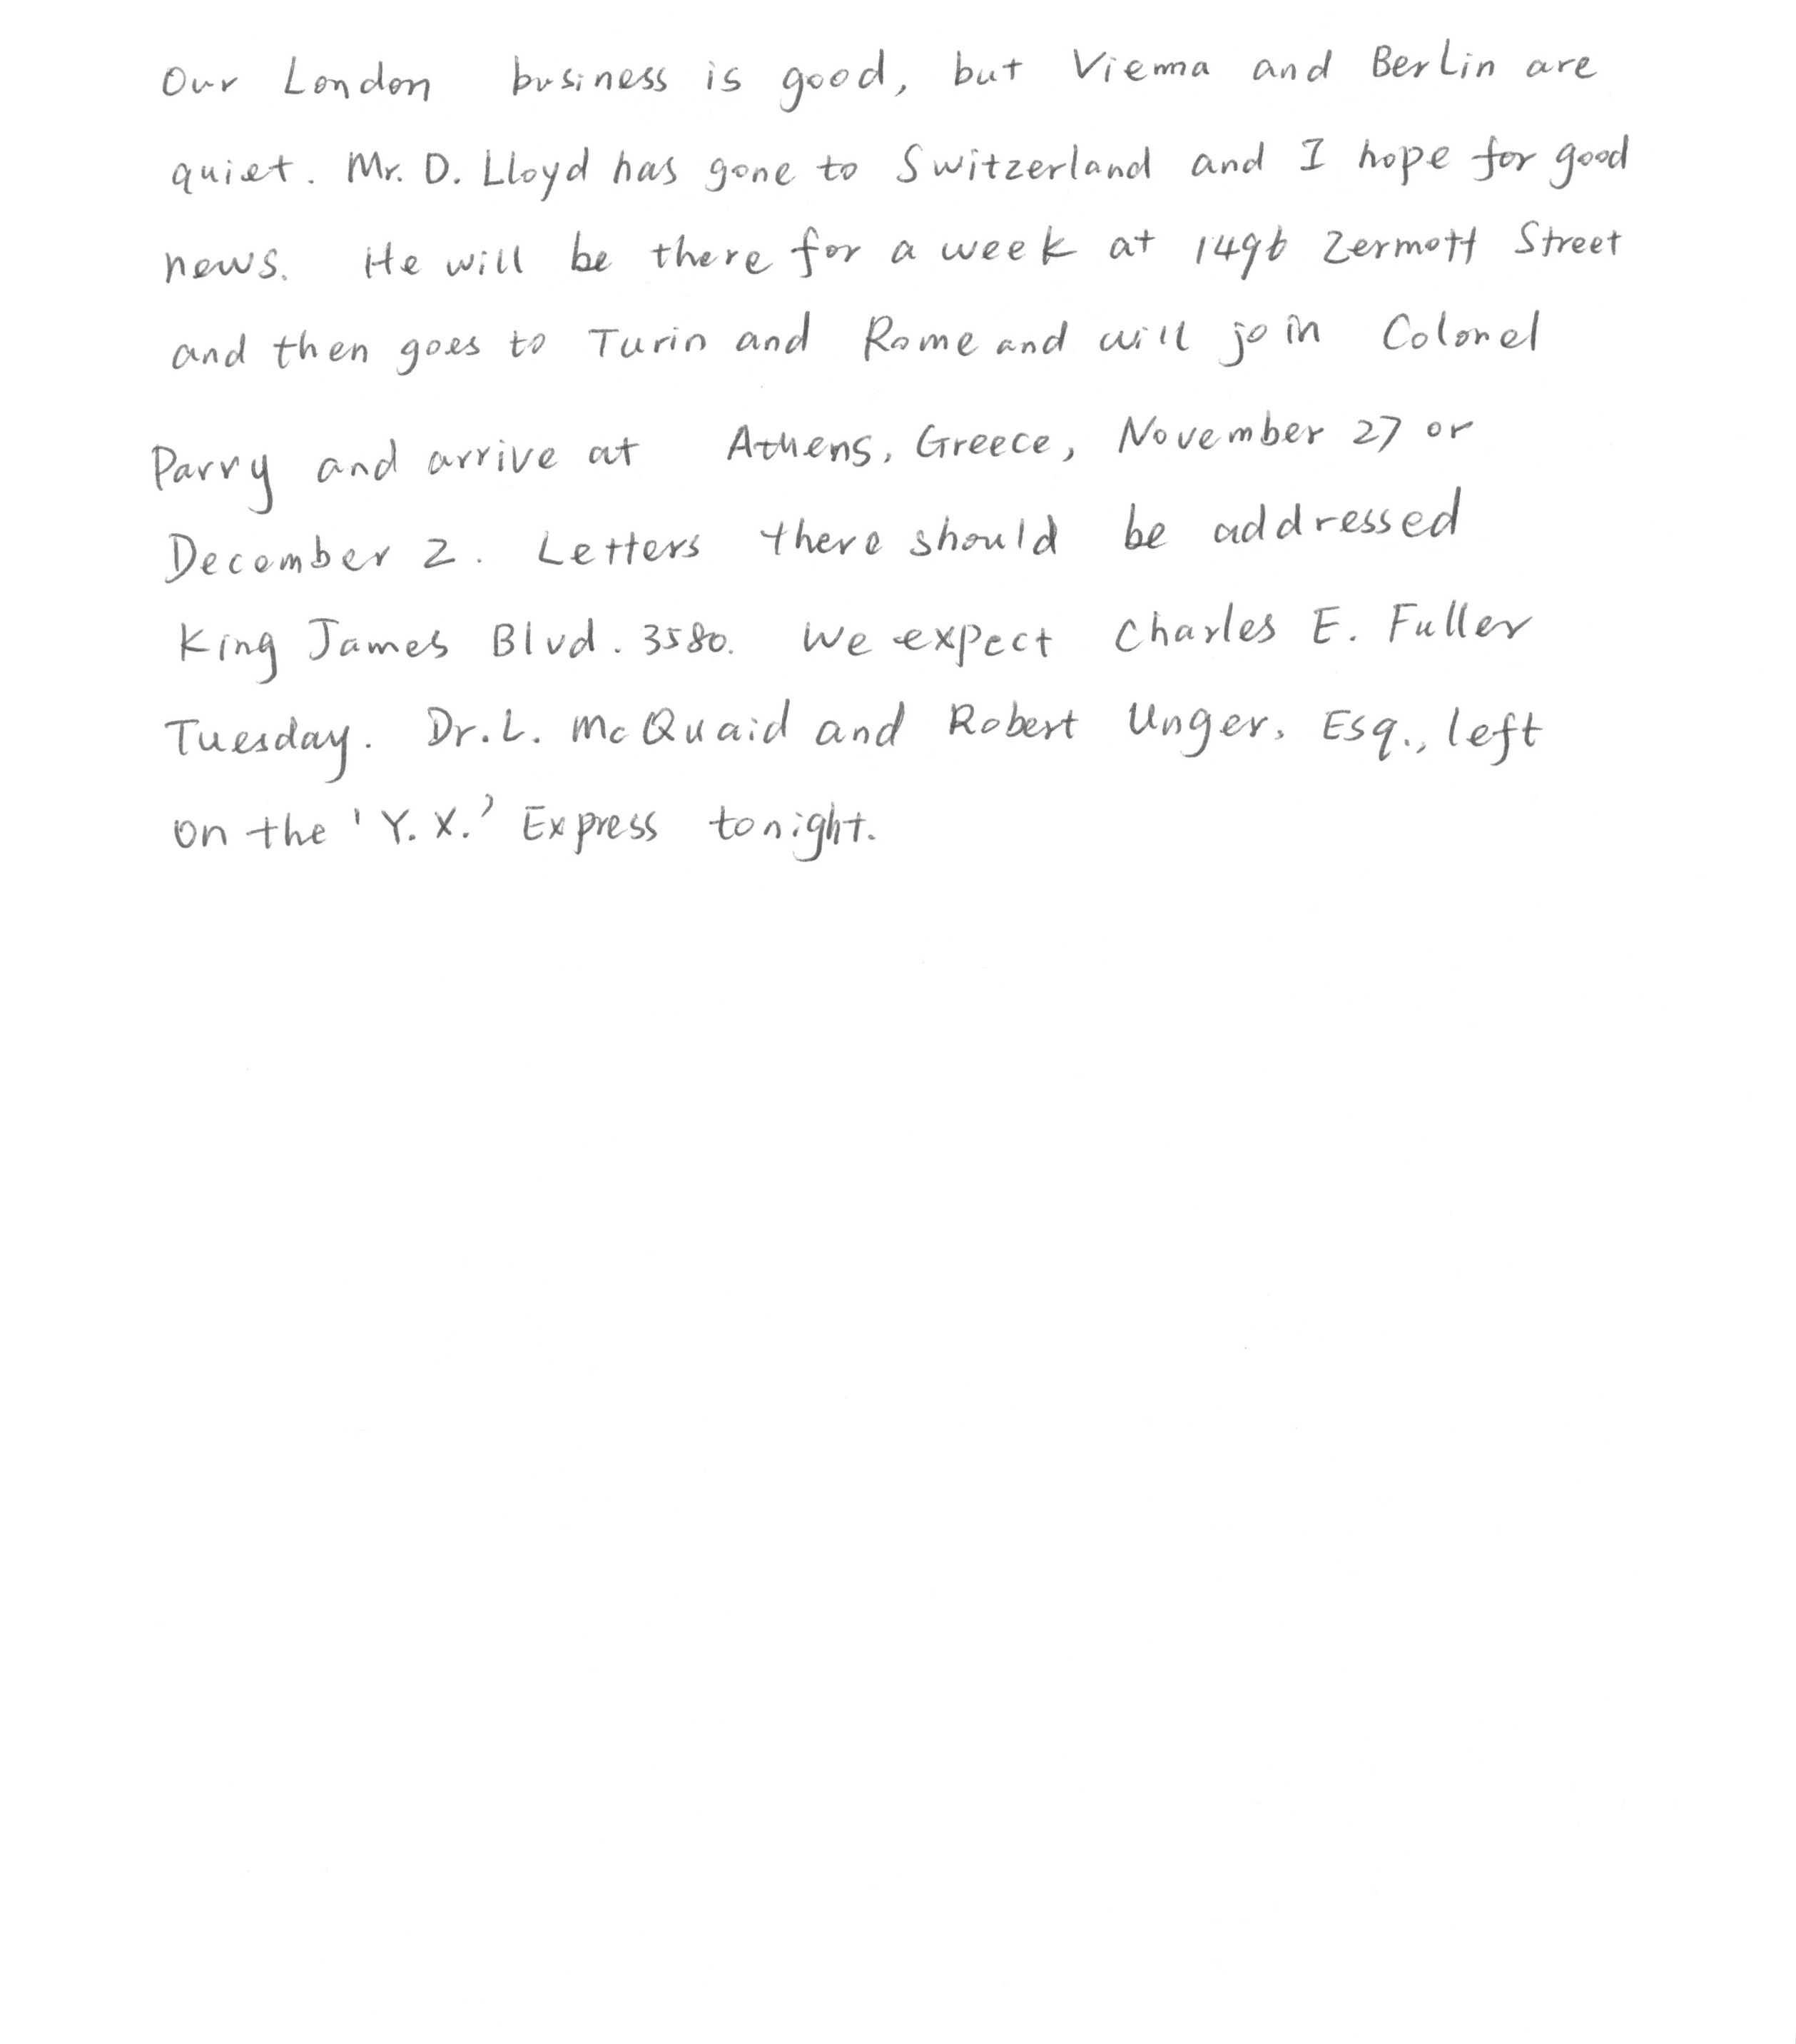 Our London business is good, but Vienna and Berlin are
quiet. Mr. D. Lloyd has gone to Switzerland and I hope for good
news. He will be there for a week at 1496 Zermott Street
and then goes to Turin and Rome and will join Colonel
Parry and arrive at Athens, Greece, November 27 or
December 2. Letters there should be addressed
King James Blvd. 3580. We expect Charles E. Fuller
Tuesday. Dr. L. McQuaid and Robert Unger, Esq., left
on the 'Y. X.' Express tonight.